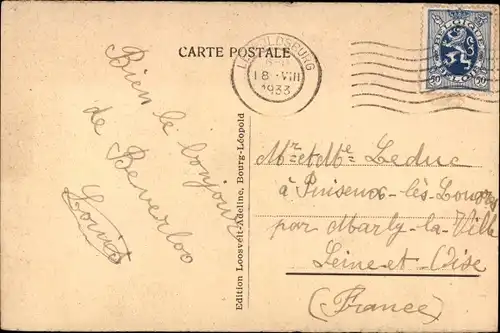 CARTE POSTALE
LEOPOLDSBURG
18 VIII
1933
BELGIQUE
BELGIE
60 60
Bien le bonjour
de Beverloo
Louis
Edition Loosveit-Adeline, Bourg-Léopold
Mr et Me Leduc
à Puiseux-lès-Louvres
par Marly-la-Ville
Seine et Oise
(France)